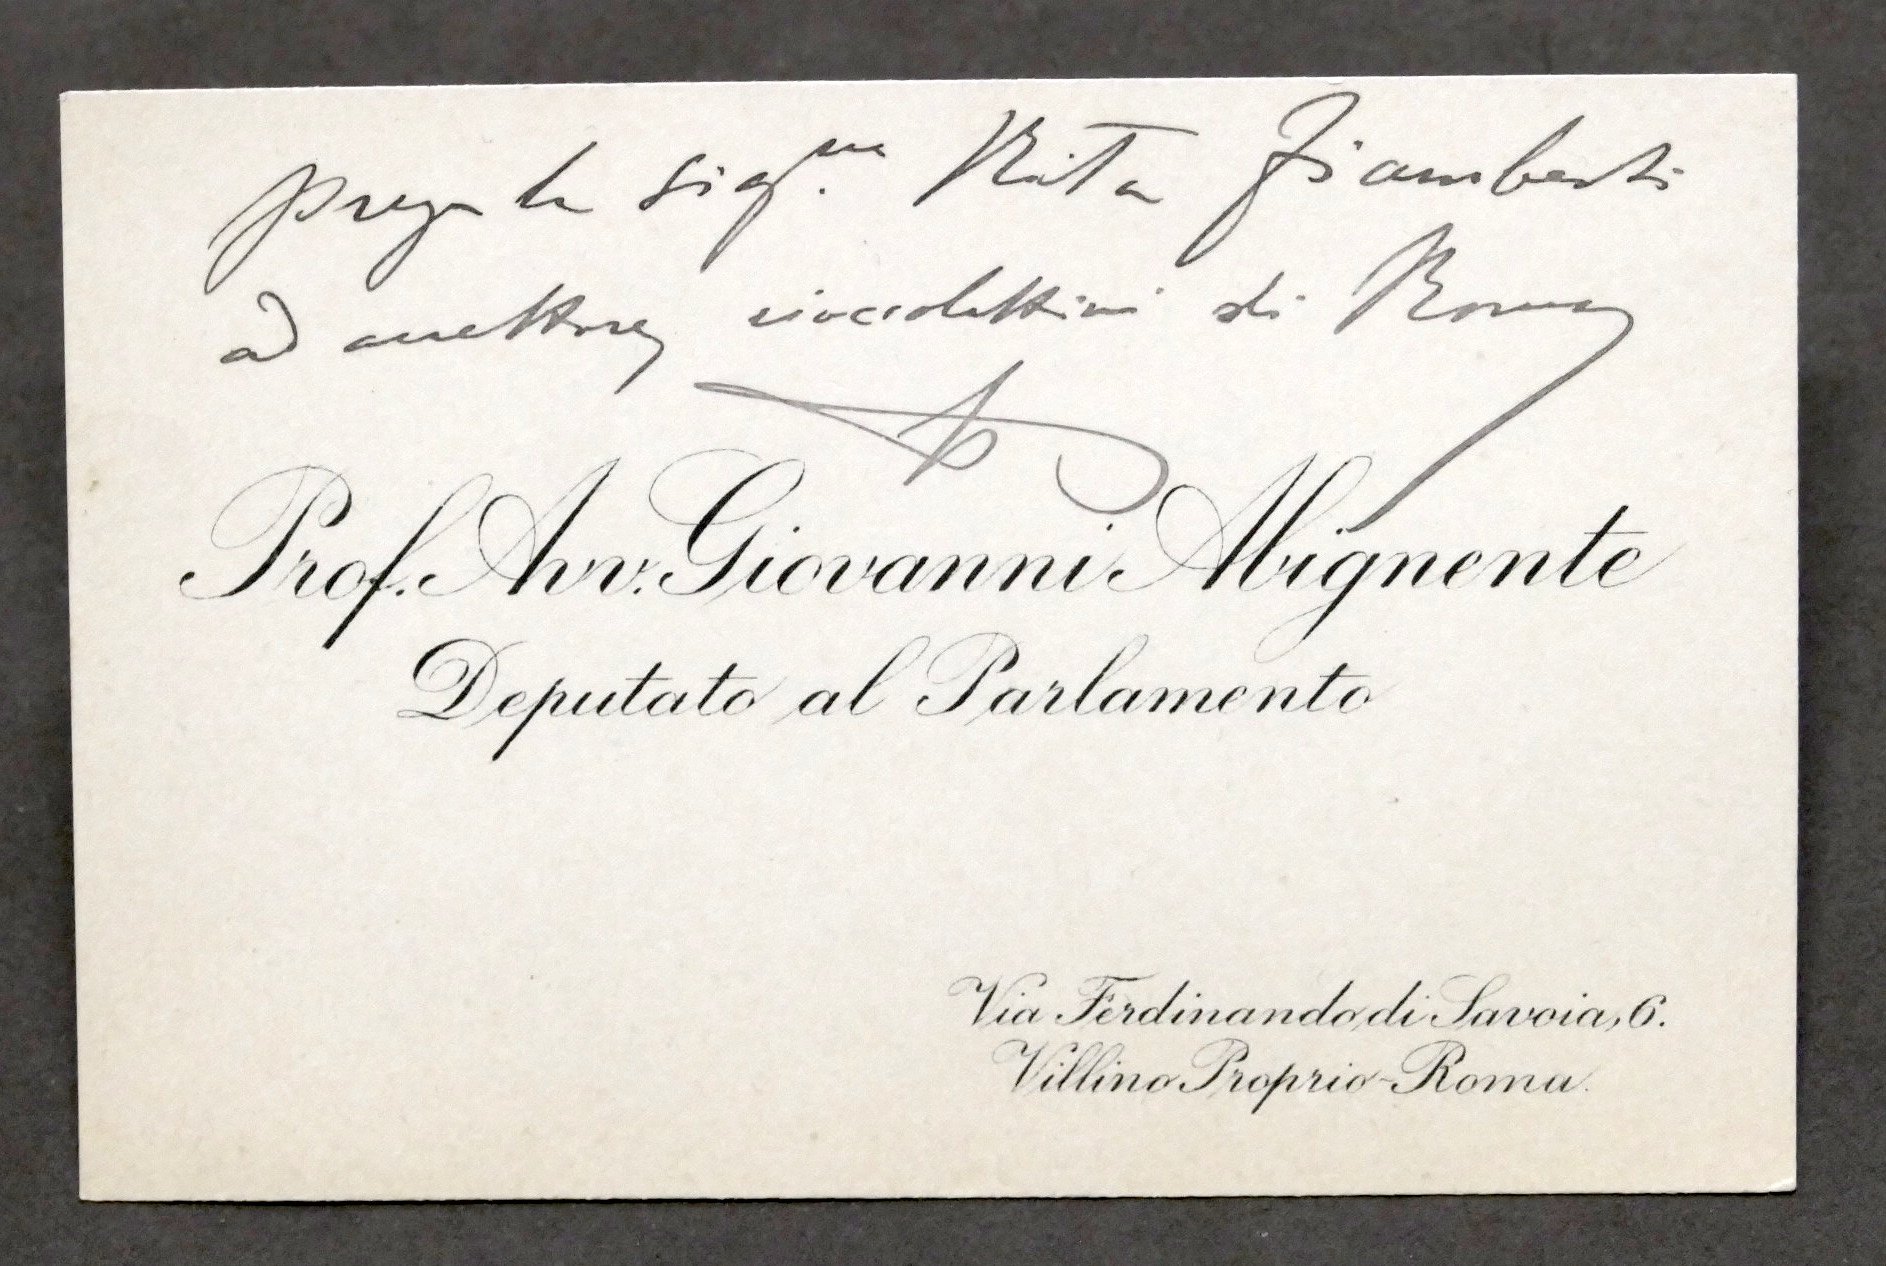 prega la sig.na Rita Giamberti
ad accettare cioccolattini di Roma
Prof. Avv. Giovanni Abignente
Deputato al Parlamento
Via Ferdinando di Savoia, 6.
Villino Proprio - Roma.